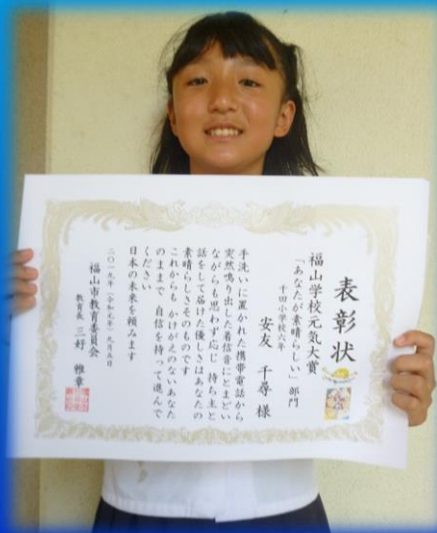 表彰状
福山学校元気大賞
「あなたが素晴らしい」部門
千田小学校六年
安友 千尋 様
手洗いに置かれた携帯電話から
突然鳴り出した着信音にとまどい
ながらも思わず応じ 持ち主と
話をして届けた優しさはあなたの
素晴らしさそのものです
これからも かけがえのないあなた
のままで 自信を持って進んで
ください
日本の未来を頼みます
二〇一九年(令和元年)九月五日
福山市教育委員会
教育長 三好 雅章